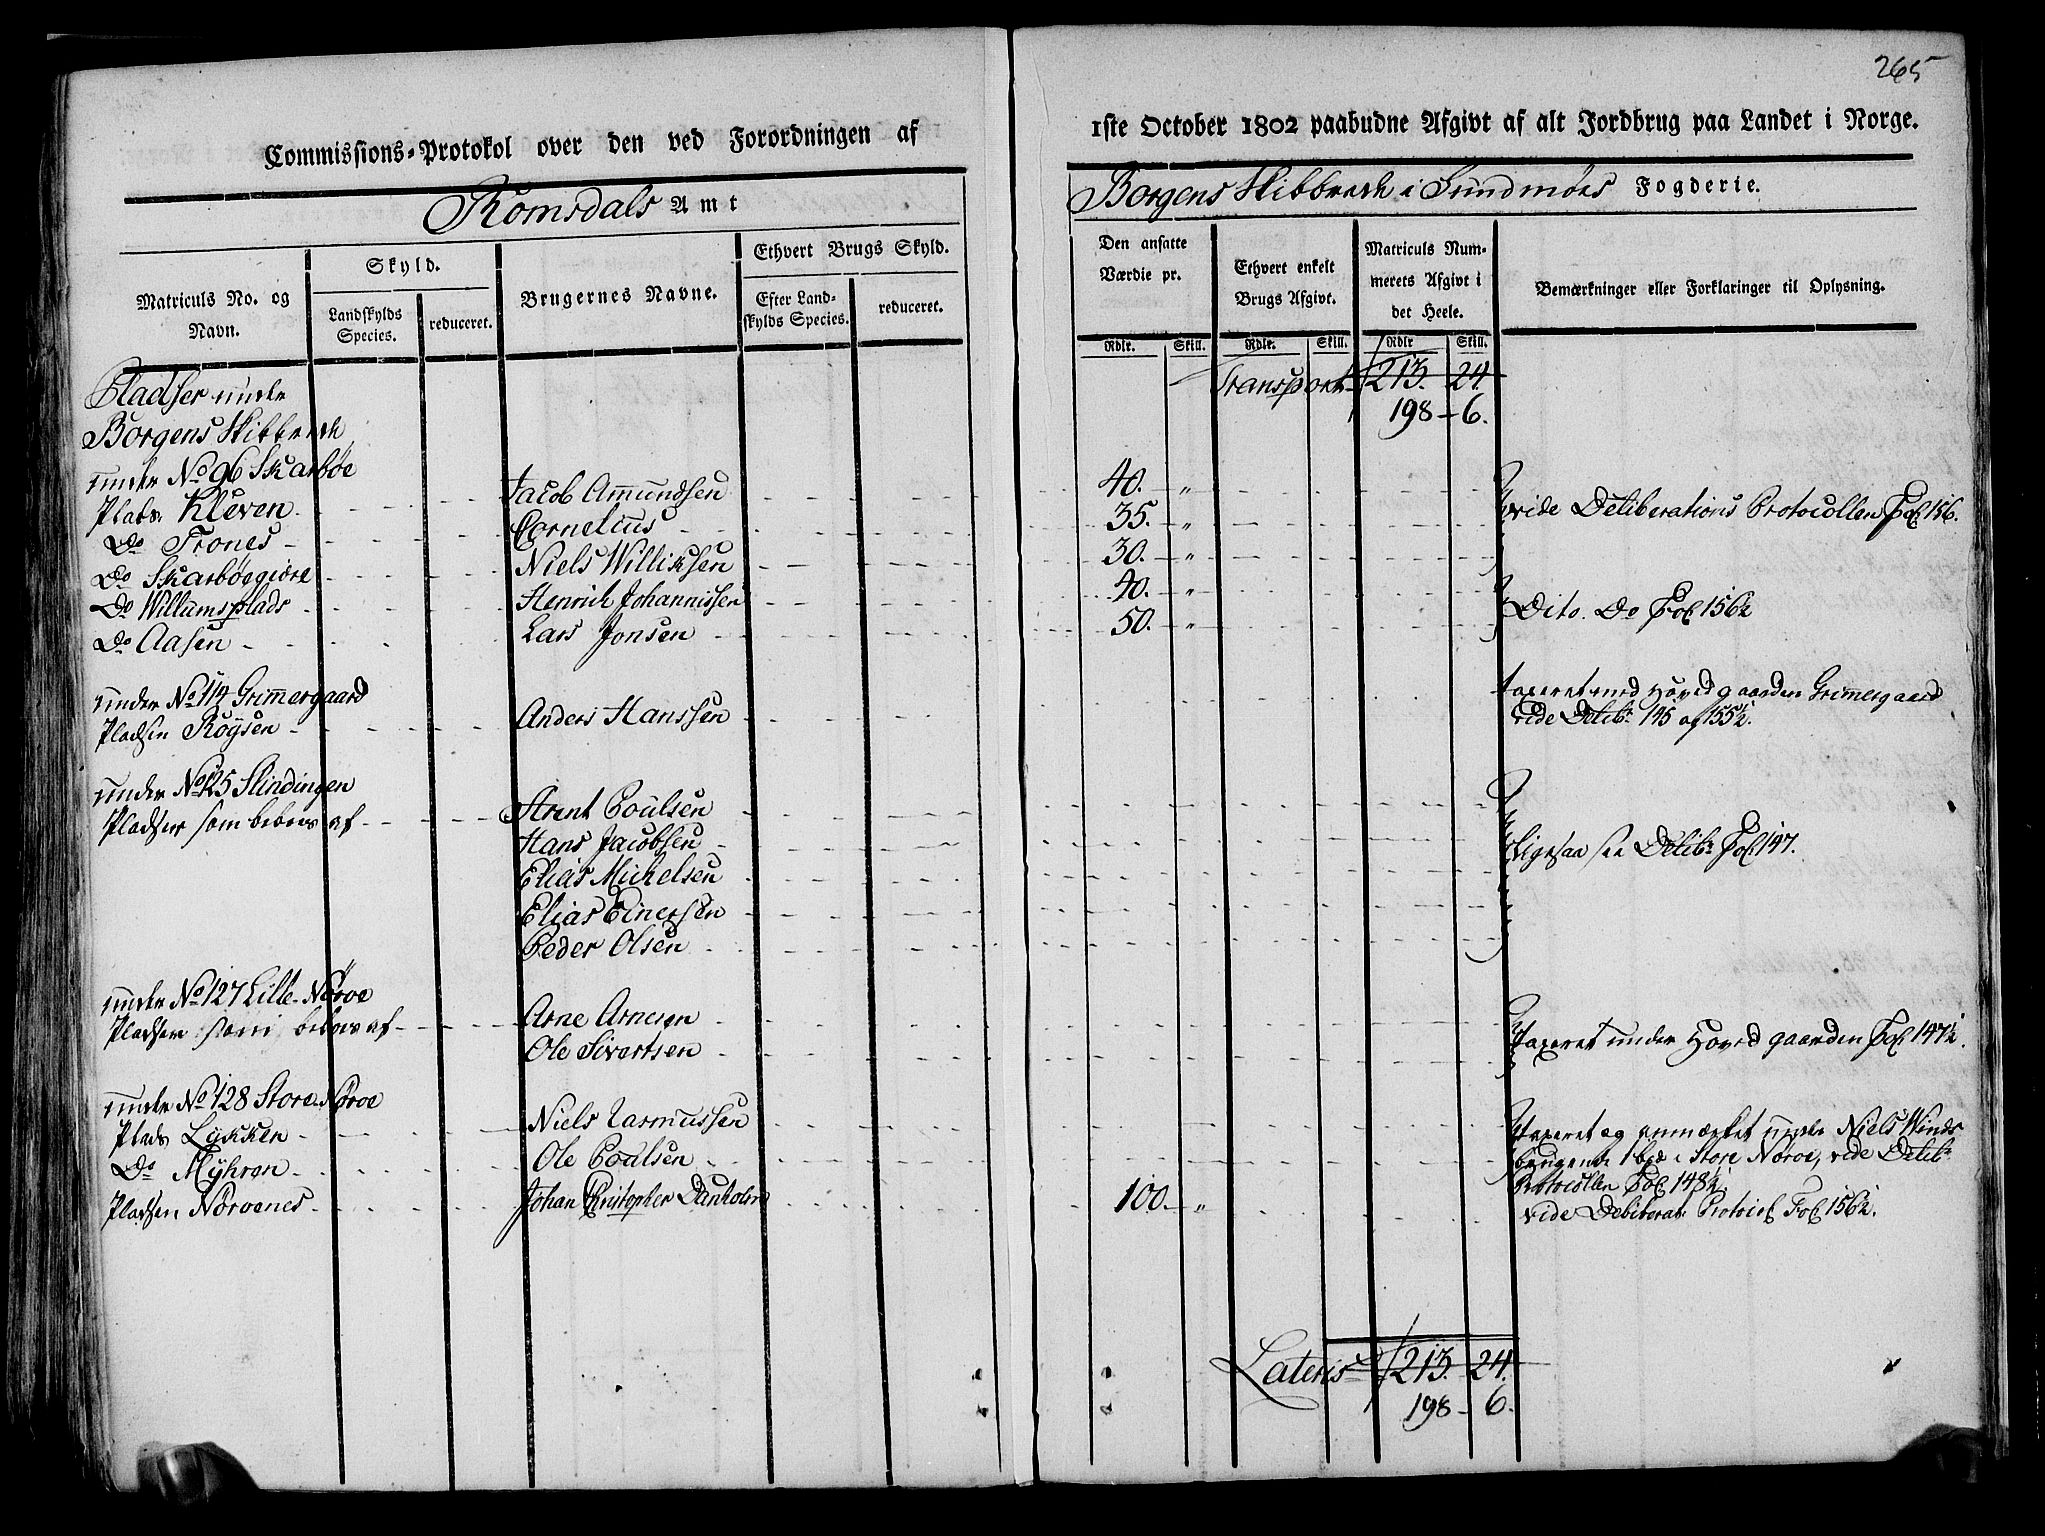 265
Commissions-Protokol over den ved Forordningen af
1ste October 1802 paabudne Afgivt af alt Jordbrug paa Landet i Norge.
Romsdals Amt
Borgens Skibbrede i Sundmöers Fogderie.
Matriculs No. og Navn.
Skyld.
Landskylds Species.
reduceret.
Brugernes Navne.
Ethvert Brugs Skyld.
Efter Landskylds Species.
reduceret.
Den ansatte Værdie pr.
Rdlr. Skill.
Ethvert enkelt Brugs Afgivt.
Rdlr. Skill.
Matriculs Nummerets Afgivt i det Heele.
Rdlr Skill.
Bemærkninger eller Forklaringer til Oplysning.
Transport 213. 24
198 - 6.
Pladser under
Borgens Skibbrede
under No 96 Skarbøe
Plads Kleven - Jacob Amundsen 40. "
Do Trones - Cornelius 35. " vide Deliberations Protocollen Fol 156.
Do Skarbøegiøre Niels Williksen 30. "
Do Willumsplads Henrich Johannissen 40. "
Do Aasen - Lars Jonsen 50. " Dito. Do Fol 156½
under No 114 Grimmergaard
Pladsen Röysen - Anders Hanssen taxeret med Hovedgaarden Grimmergaard
vide Delibr 145 af 155½.
under No 125 Slindingen
Pladser som beboes af - Arent Poulsen
Hans Jacobsen
Ligesaa see Delibr Fol 147.
Elias Michelsen
Elias Einersen
Peder Olsen
under No 127 Lille Nøroe
Pladsen som beboes af - Arne Arnesen
Ole Sivertsen
Taxeret under Hovedgaarden Fol 147½.
under No 128 Store Nøroe
Plads Lykken - Niels Rasmussen
Do Myhren - Ole Poulsen
Taxeret og anmærket under Niels Winds
brugende i Store Nøroe, vide Delibr
Protocollen Fol 148½
Pladsen Nørvenes - Johan Christopher Danholm 100. "
vide Deliberat: Protocol Fol 156½.
Lateris 213. 24.
198 - 6.